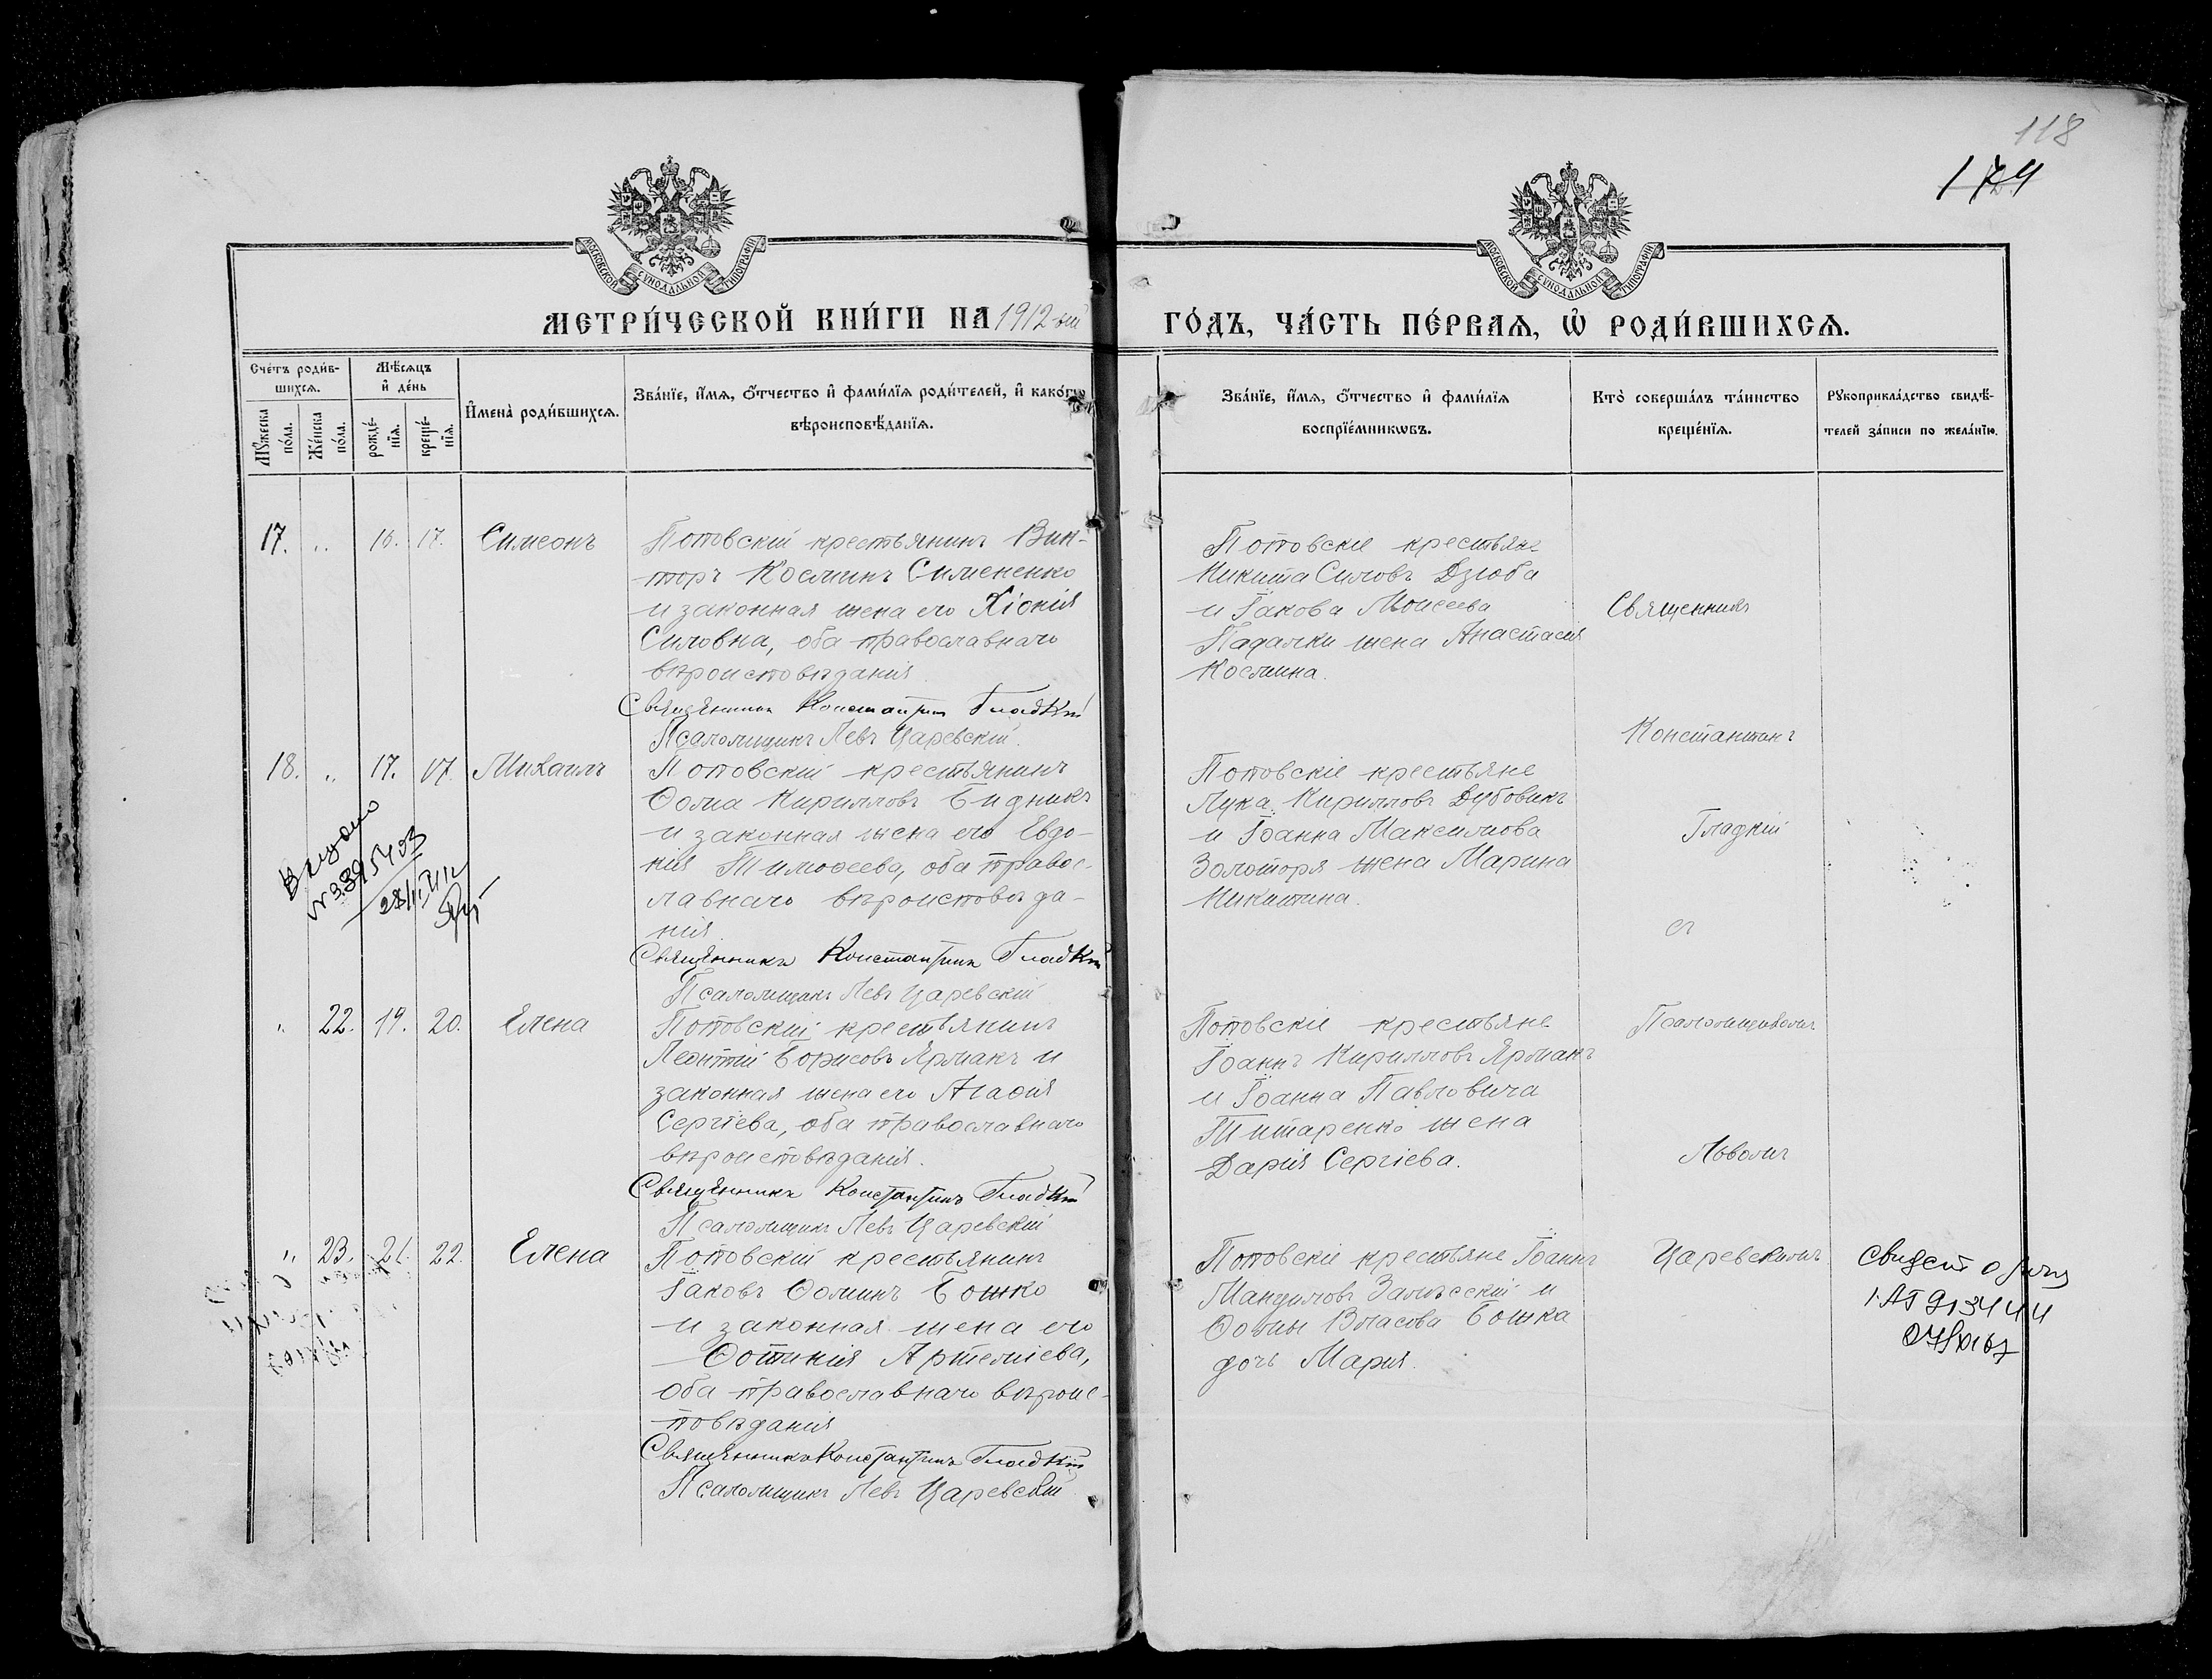 118
174
МОСКОВСКОЙ СѴНОДАЛЬНОЙ ТИПОГРАФІИ
МОСКОВСКОЙ СѴНОДАЛЬНОЙ ТИПОГРАФІИ
МЕТРИ́ЧЕСКОЙ КНИ́ГИ НА 1912-ый
ГО́ДЪ, ЧА́СТЬ ПЕ́РВАѦ, Ѡ҆ РОДИ́ВШИХСѦ.
Сче́тъ роди́в-
шихсѧ.
Мꙋ́жеска по́ла.
Же́нска по́ла.
Мѣ́сѧцъ
и҆ де́нь
рожде́-
нїѧ.
креще́-
нїѧ.
И҆мена̀ роди́вшихсѧ.
Зва́нїе, и҆́мѧ, ѻ҆́тчество и҆ фами́лїѧ роди́телей, и҆ како́гѡ
вѣроисповѣ́данїѧ.
Зва́нїе, и҆́мѧ, ѻ҆́тчество и҆ фами́лїѧ
воспрїе́мникѡвъ.
Кто̀ соверша́лъ та́инство
креще́нїѧ.
Рꙋкоприкла́дство свидѣ́-
телей за́писи по жела́нїю.
17. „ 16. 17. Симеонъ
Поповскій крестьянинъ Вик-
торъ Косминъ Симененко
и законная жена его Хіонія
Силовна, оба православнаго
вѣроисповѣданія.
Священникъ Константинъ Гладкій
Псаломщикъ Левъ Царевскій.
Поповскіе крестьяне
Никита Силовъ Дзюба
и Іакова Моисеева
Падалки жена Анастасія
Космина.
18. „ 17. 17. Михаилъ
Поповскій крестьянинъ
Ѳома Кирилловъ Бидникъ
и законная жена его Евдо-
кія Тимоѳеева, оба правос-
лавнаго вѣроисповѣда-
нія.
Священникъ Константинъ Гладкій
Псаломщикъ Левъ Царевскій
Поповскіе крестьяне
Лука Кирилловъ Дубовикъ
и Іоанна Максимова
Золоторя жена Марина
Никитина.
„ 22. 19. 20. Елена
Поповскій крестьянинъ
Леонтій Борисовъ Ярмакъ и
законная жена его Агаѳія
Сергіева, оба православнаго
вѣроисповѣданія.
Священникъ Константинъ Гладкій
Псаломщикъ Левъ Царевскій
Поповскіе крестьяне
Іоаннъ Кирилловъ Ярмакъ
и Іоанна Павловича
Титаренко жена
Дарія Сергіева.
„ 23. 21. 22. Елена
Поповскій крестьянинъ
Іаковъ Ѳоминъ Бошко
и законная жена его
Ѳотинія Артеміева,
оба православнаго вѣроис-
повѣданія
Священникъ Константинъ Гладкій
Псаломщикъ Левъ Царевскій
Поповскіе крестьяне Іоаннъ
Залѣсскій и
Ѳомы Власова Бошка
дочь Марія.
Священникъ
Константинъ
Гладкій
съ
Псаломщикомъ
Львомъ
Царевскимъ
свидет о